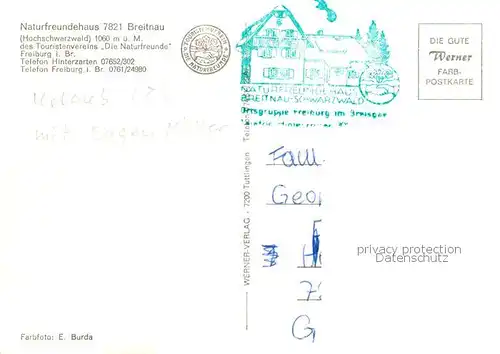 Naturfreundehaus 7821 Breitnau
(Hochschwarzwald) 1060 m ü. M.
des Touristenvereins „Die Naturfreunde"
Freiburg i. Br.
Telefon Hinterzarten 07652/302
Telefon Freiburg i. Br. 0761/24980
Urlaub
mit
NATURFREUNDEHAUS
BREITNAU-SCHWARZWALD
Ortsgruppe Freiburg im Breisgau
DIE GUTE
Werner
FARB-
POSTKARTE
WERNER-VERLAG - 7200 Tuttlingen
Fam
Geo
privacy protection
Datenschutz
Farbfoto: E. Burda